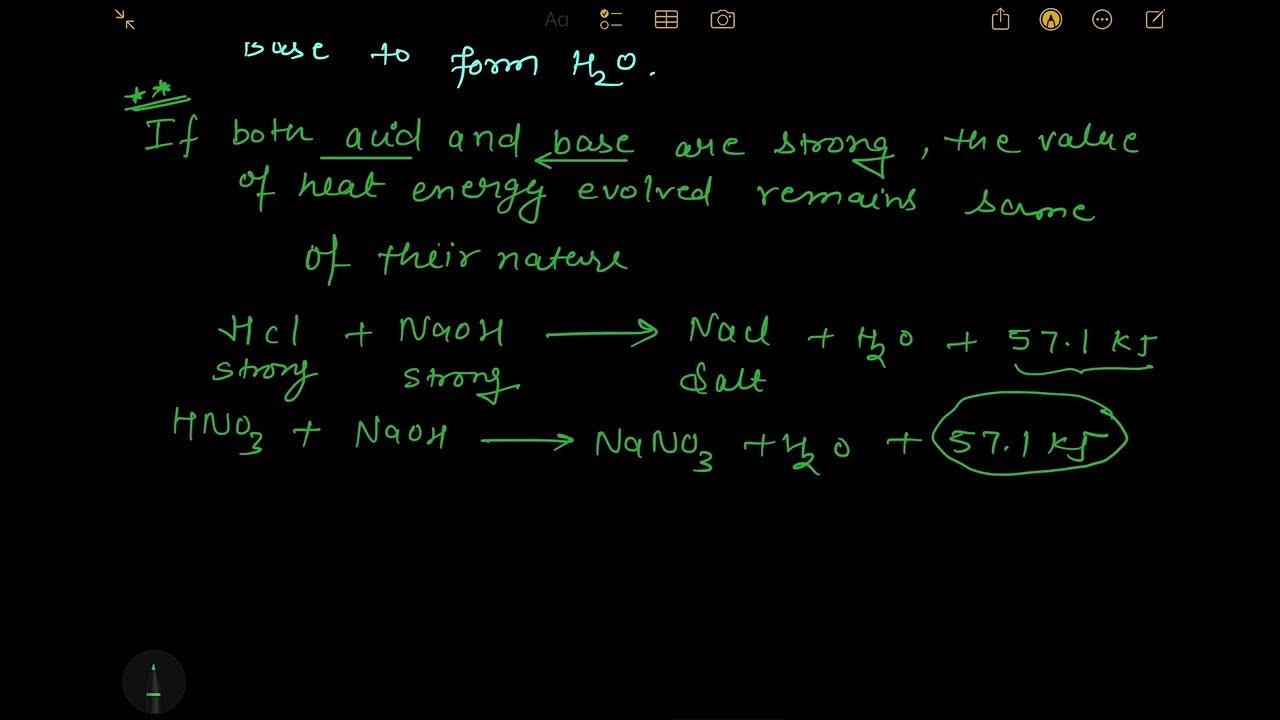 Aa
Base to form H₂O.
**
If both acid and base are strong, the value
of heat energy evolved remains same
of their nature
HCl + NaOH → NaCl + H₂O + 57.1 KJ
strong strong Salt
HNO₃ + NaOH → NaNO₃ + H₂O + 57.1 KJ